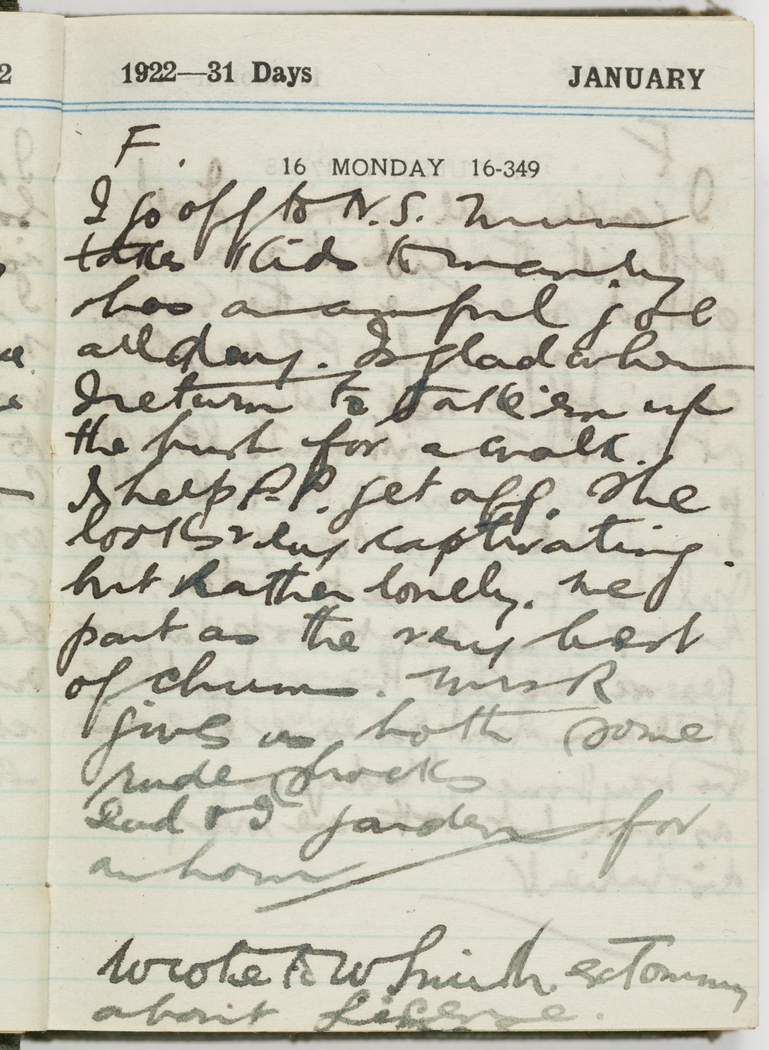 2
1922—31 Days JANUARY
F.
16 MONDAY 16-349
I go off to N.S. Mum
takes Kids to manly
has an awful job
all day. Is glad when
I return to take 'em up
the bush for a walk.
I help P.P. get off. She
looks very captivating
but rather lonely. We
part as the very best
of chums. Mrs R
gives us both some
rude shocks
Dad & I garden for
an hour
Wrote to W Smith
about